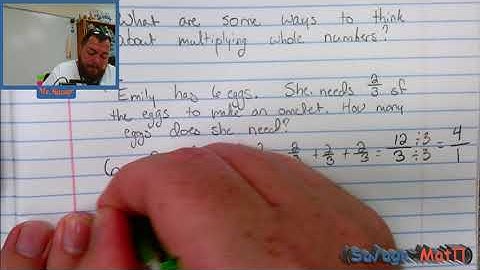 What are some ways to think
about multiplying whole numbers?
Emily has 6 eggs. She needs 2/3 of
the eggs to make an omlet. How many
eggs does she need?
6 2/3 + 2/3 + 2/3 = 12/3 ÷3/÷3 = 4/1
Mr. Savage
Savage Math